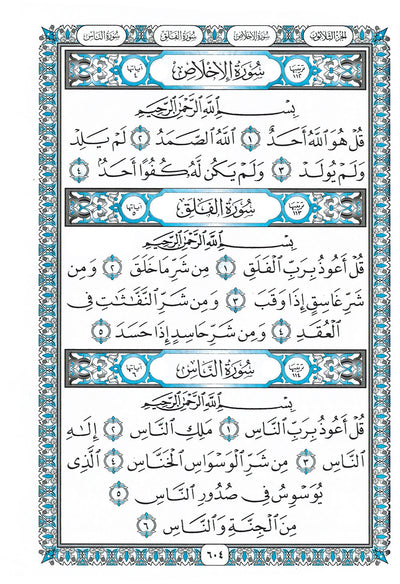 الجزء الثلاثون سورة الإخلاص سورة الفلق سورة الناس
ترتيبها ١١٢ سُورَةُ الإِخْلَاصِ آياتها ٤
بِسْمِ ٱللَّهِ ٱلرَّحْمَٰنِ ٱلرَّحِيمِ
قُلْ هُوَ ٱللَّهُ أَحَدٌ ١ ٱللَّهُ ٱلصَّمَدُ ٢ لَمْ يَلِدْ
وَلَمْ يُولَدْ ٣ وَلَمْ يَكُن لَّهُۥ كُفُوًا أَحَدٌۢ ٤
ترتيبها ١١٣ سُورَةُ الفَلَقِ آياتها ٥
بِسْمِ ٱللَّهِ ٱلرَّحْمَٰنِ ٱلرَّحِيمِ
قُلْ أَعُوذُ بِرَبِّ ٱلْفَلَقِ ١ مِن شَرِّ مَا خَلَقَ ٢ وَمِن
شَرِّ غَاسِقٍ إِذَا وَقَبَ ٣ وَمِن شَرِّ ٱلنَّفَّٰثَٰتِ فِى
ٱلْعُقَدِ ٤ وَمِن شَرِّ حَاسِدٍ إِذَا حَسَدَ ٥
ترتيبها ١١٤ سُورَةُ النَّاسِ آياتها ٦
بِسْمِ ٱللَّهِ ٱلرَّحْمَٰنِ ٱلرَّحِيمِ
قُلْ أَعُوذُ بِرَبِّ ٱلنَّاسِ ١ مَلِكِ ٱلنَّاسِ ٢ إِلَٰهِ
ٱلنَّاسِ ٣ مِن شَرِّ ٱلْوَسْوَاسِ ٱلْخَنَّاسِ ٤ ٱلَّذِى
يُوَسْوِسُ فِى صُدُورِ ٱلنَّاسِ ٥
مِنَ ٱلْجِنَّةِ وَٱلنَّاسِ ٦
٦٠٤